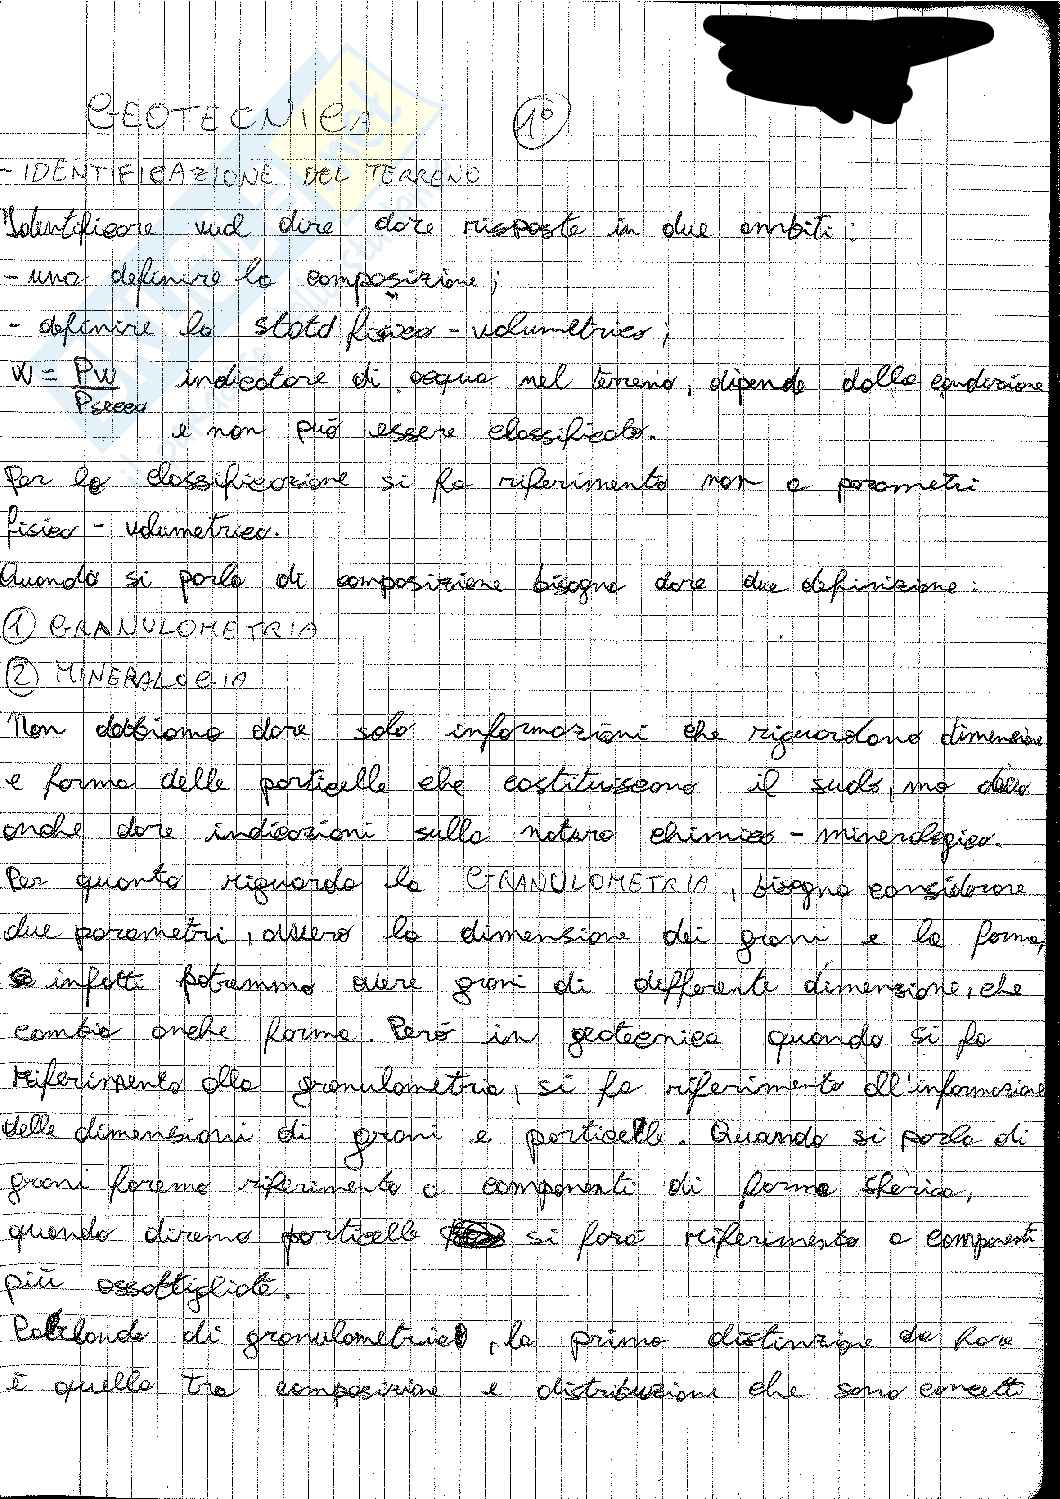 GEOTECNICA 1°
- IDENTIFICAZIONE DEL TERRENO
Identificare vuol dire dare risposte in due ambiti:
- uno definire la composizione;
- definire lo stato fisico-volumetrico;
W = Pw / Psecco indicatore di acqua nel terreno, dipende dalla condizione
e non può essere classificato.
Per la classificazione si fa riferimento non a parametri
fisico-volumetrico.
Quando si parla di composizione bisogna dare due definizione:
① GRANULOMETRIA
② MINERALOGIA
Non dobbiamo dare solo informazioni che riguardono dimensione
e forma delle particelle che costituiscono il suolo, ma devo
anche dare indicazioni sulla natura chimico-mineralogica.
Per quanto riguarda la GRANULOMETRIA, bisogna considerare
due parametri, ovvero la dimensione dei grani e la forma,
infatti potremmo avere grani di differente dimensione, che
cambia anche forma. Però in geotecnica quando si fa
riferimento alla granulometria, si fa riferimento all'informazione
delle dimensioni di grani e particelle. Quando si parla di
grani faremo riferimento a componenti di forma sferica,
quando diremo particelle si farà riferimento a componenti
più assottigliate.
Parlando di granulometria, la prima distinzione da fare
è quella tra composizione e distribuzione che sono concetti